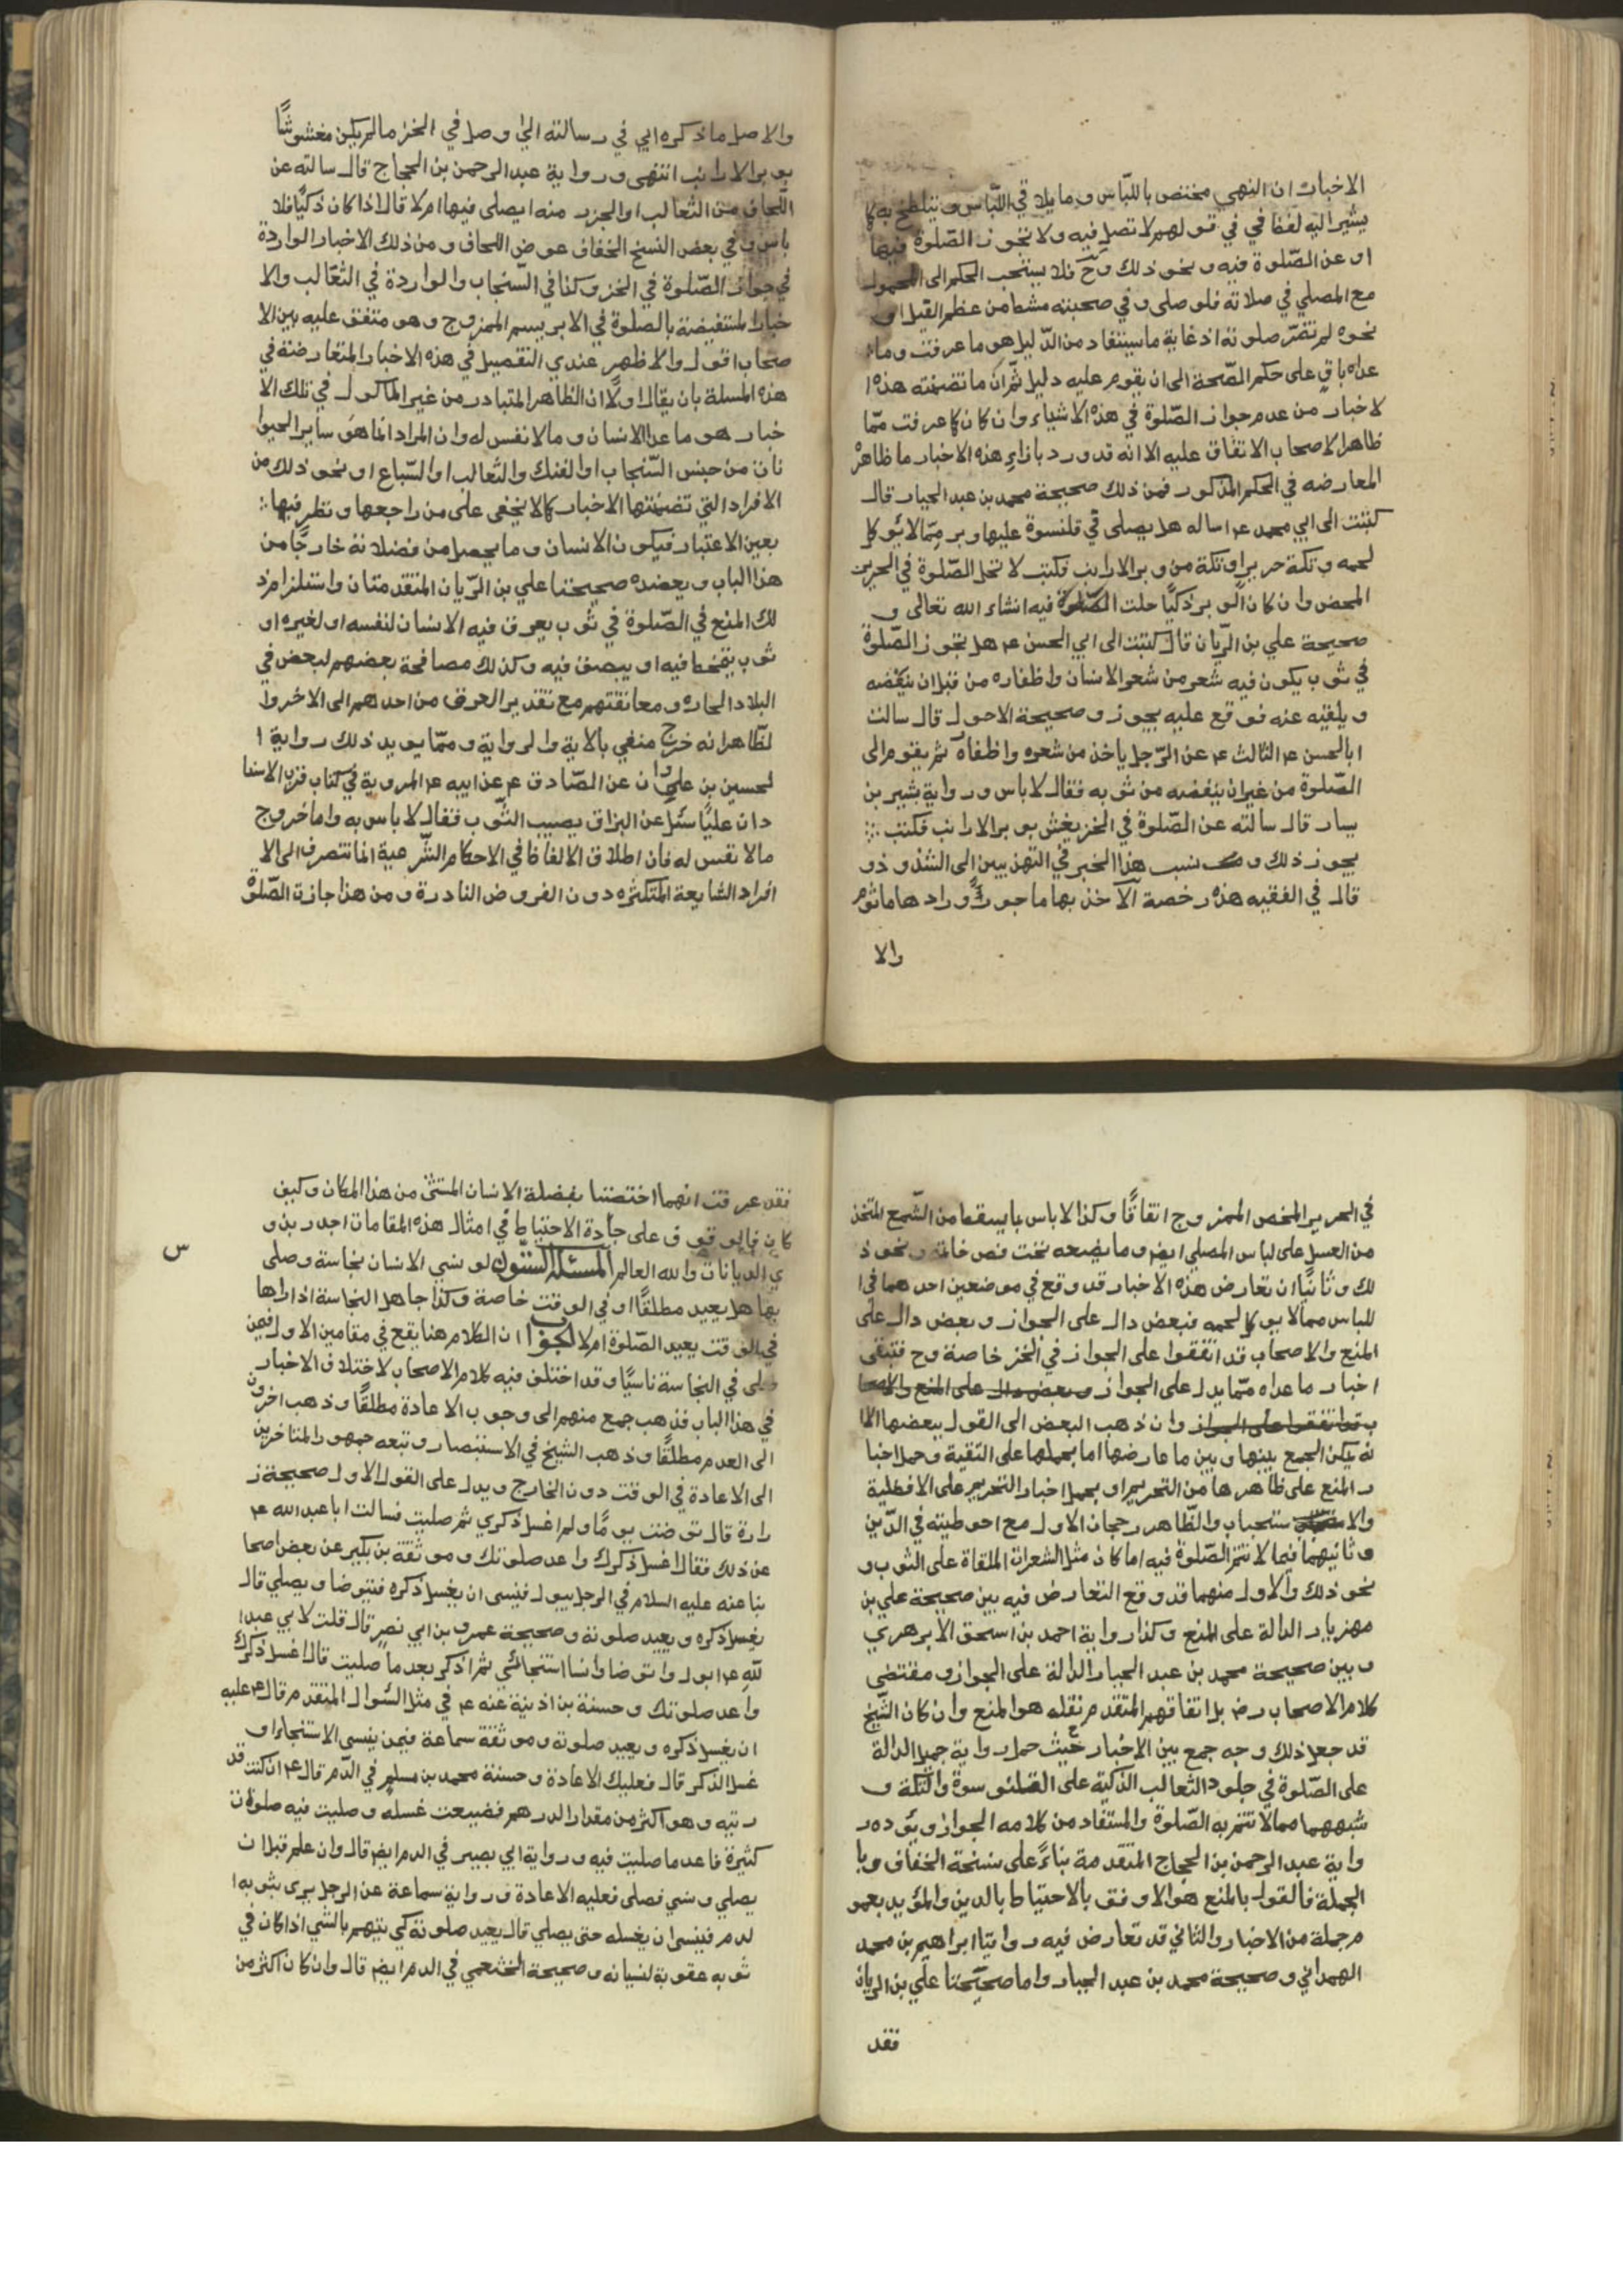 الاخبارات ان النهي مختص باللبّاس وما يلاقي اللّباس ويتلطخ به كا
يشير اليه لفظا في في قولهم لا تصل فيه ولا تجوز الصّلوة فيها
او عن الصّلوة فيه ونحو ذلك وحّ فلا يستحب الحكم الى المحمول
مع المصلي في صلاته فلو صلى وفي صحبته مشط من عظم الفيل او
نحوه لم تضرّ صلوته اذ غاية ما يستفاد من الدّليل هو ما عرفت وما
عداه باق على حكم الصّحة الى ان يقوم عليه دليل ثمّ ان ما تضمنته هذه ا
لاخبار من عدم جواز الصّلوة في هذه الاشياء وان كان كما عرفت ممّا
ظاهر الاصحاب الاتفاق عليه الا انه قد ورد بازاءِ هذه الاخبار ما ظاهره
المعارضه في الحكم المذكور فمن ذلك صحيحة محمد بن عبد الجبار قال
كتبت الى ابي محمد ع اساله هل يصلى في قلنسوة عليها وبر ممّا لا يؤكل
لحمه وتكة حرير او تكة من وبر الارانب فكتب لا تحل الصّلوة في الحرير
المحض وان كان الوبر ذكيّا حلت الصّلوة فيه انشاء الله تعالى و
صحيحة علي بن الرّيان قال كتبت الى ابي الحسن ع هل تجوز الصّلوة
في ثوب يكون فيه شعر من شعر الانسان واظفاره من قبل ان ينفضه
ويلقيه عنه فوقع عليه يجوز وصحيحة الاحول قال سالت
ابا الحسن ع الثالث ع عن الرّجل ياخذ من شعره واظفاره ثم يقوم الى
الصّلوة من غير ان ينفضه من ثوبه فقال لا باس ورواية بشير بن
يسار قال سالته عن الصّلوة في الخز يغش بوبر الارانب فكتب
يجوز ذلك و نسب هذا الخبر في التهذيبين الى الشذوذ و
قال في الفقيه هذه رخصة الآخذ بها ماجور ورادها ماثوم
والا
والاصل ما ذكره ابي في رسالته اليّ وصل في الخز ما لم يكن مغشوشًا
بوبر الارانب انتهى ورواية عبد الرحمن بن الحجاج قال سالته عن
اللّحاف من الثعالب او الجرز منه ايصلى فيها ام لا قال اذا كان ذكيّا فلا
باس وفي بعض النسخ الخفاف عوض اللحاف ومن ذلك الاخبار الواردة
في جواز الصّلوة في الخز وكذا في السّنجاب والواردة في الثعالب والا
خبار المستفيضة بالصلوة في الابريسم الممزوج وهو متفق عليه بين الا
صحاب اقول والاظهر عندي التفصيل في هذه الاخبار المتعارضة في
هذه المسلة بان يقال اولًا ان الظاهر المتبادر من غير الماكول في تلك الا
خبار هو ما عدا الانسان وما لا نفس له وان المراد انما هو ساير الحيوا
نات من جنس السّنجاب او الفنك والثعالب او السّباع او نحو ذلك من
الافراد التي تضمنتها الاخبار كما لا يخفى على من راجعها ونظر فيها
بعين الاعتبار فيكون الانسان وما يحصل من فضلاته خارجًا من
هذا الباب ويعضده صحيحتا علي بن الرّيان المتقدمتان واستلزام ذ
لك المنع في الصّلوة في ثوب يعرق فيه الانسان لنفسه او لغيره او
ثوب يتمخط فيه او يبصق فيه وكذلك مصافحة بعضهم لبعض في
البلاد الحاره ومعانقتهم مع تقدير العرق من احدهم الى الاخر وا
لظّاهر انه خرج منفي بالاية والرواية وممّا يويد ذلك رواية ا
لحسين بن علوان عن الصّادق ع عن ابيه ع المروية في كتاب قرب الاسنا
د ان عليّا سئل عن البزاق يصيب الثّوب فقال لا باس به واما خروج
مالا نفس له فان اطلاق الالفاظ في الاحكام الشّرعية انما تتصرف الى الا
افراد الشايعة المتكثره دون الفروض النادرة ومن هذا جازت الصّلوة
في الحرير المخص الممزوج اتفاقًا وكذا لا باس بما يسقط من الشّمع المتخذ
من العسل على لباس المصلي ايضر وما يضعه تحت فص خاتمه ونحو ذ
لك وثانيًا ان تعارض هذه الاخبار قد وقع في موضعين احدهما في ا
للباس مما لا يوكل لحمه فبعض دال على الجواز وبعض دال على
المنع والاصحاب قد اتفقوا على الجواز في الخز خاصة وح فتبقى
اخبار ما عداه ممّا يدل على الجواز وبعض دال على المنع والاصحا
ب قد اتفقوا على الجواز وان ذهب البعض الى القول ببعضها الا ا
نه يمكن الجمع بينها وبين ما عارضها اما بحملها على التقية وحمل اخبا
ر المنع على ظاهرها من التحريم او بحمل اخبار التحريم على الافضلية
والا ستحباب والظّاهر رجحان الاول مع احوطيته في الدّين
وثانيهما فيما لا تتم الصّلوة فيه اما كان مثل الشعرات الملقاة على الثوب و
نحو ذلك والاول منهما قد وقع التعارض فيه بين صحيحة علي بن
مهزيار الدالة على المنع وكذا رواية احمد بن اسحق الابرهري
وبين صحيحة محمد بن عبد الجبار الدالة على الجواز ومقتضى
كلام الاصحاب رض بل اتفاقهم المتقدم نقله هو المنع وان كان الشّيخ
قد جعل ذلك وجه جمع بين الاخبار حيث حمل رواية جميل الدالة
على الصّلوة في جلود الثعالب الذكية على القلنسوة والتّكة و
شبههما مما لا تتم به الصّلوة والمستفاد من كلامه الجواز ويؤده ر
واية عبد الرحمن بن الحجاج المتقدمة بناءً على نسخة الخفاف وبا
الجملة فالقول بالمنع هو الاوفق بالاحتياط بالدين والمؤيد بعمو
م جملة من الاخبار والثاني قد تعارض فيه روايتا ابراهيم بن محمد
الهمداني وصحيحة محمد بن عبد الجبار واما صحيحتا علي بن الريان
فقد
فقد عرفت انهما اختصتا بفضلة الانسان المستثنى من هذا المكان وكيف
كان فالوقوف على جادة الاحتياط في امثال هذه المقامات اجدر بذو
ي الديانات والله العالم المسئلة الستّون لو نسي الانسان نجاسة وصلى
س
بها هل يعيد مطلقًا او في الوقت خاصة وكذا جاهل النجاسة اذا راها
في الوقت يعيد الصّلوة ام لا الجواب ان الكلام هنا يقع في مقامين الاول فيمن
صلى في النجاسة ناسيًا وقد اختلف فيه كلام الاصحاب لاختلاف الاخبار
في هذا الباب فذهب جمع منهم الى وجوب الاعادة مطلقًا وذهب اخرون
الى العدم مطلقًا وذهب الشيخ في الاستبصار وتبعه جمهور المتاخرين
الى الاعادة في الوقت دون الخارج ويدل على القول الاول صحيحة ز
رارة قال توضت يومًا ولم اغسل ذكري ثم صليت فسالت ابا عبد الله ع
عن ذلك فقال اغسل ذكرك واعد صلوتك وموثقة بن بكير عن بعض اصحا
بنا عنه عليه السلام في الرجل يبول فينسى ان يغسل ذكره فتيوضا ويصلي قال
يغسل ذكره ويعيد صلوته وصحيحة عمرو بن ابي نصر قال قلت لابي عبد ا
للهِ ع ابول واتوضا وانسا استنجائي ثم اذكر بعد ما صليت قال اغسل ذكرك
واعد صلوتك وحسنة بن اذينة عنه ع في مثل السّوال المتقدم قال ع عليه
ان يغسل ذكره ويعيد صلوته وموثقة سماعة فيمن ينسى الاستنجاء او
غسل الذكر قال فعليك الاعادة وحسنة محمد بن مسلم في الدّم قال ع ان كنت قد
رتيه وهو اكثر من مقدار الدرهم فضيعت غسله وصليت فيه صلوة ت
كثيرة فاعد ما صليت فيه ورواية ابي بصير في الدم ايض قال وان علم قبل ان
يصلي ونسي فصلى فعليه الاعادة ورواية سماعة عن الرجل يرى بثوبه ا
لدم فينسى ان يغسله حتى يصلي قال يعيد صلوته كي يتهم بالشي اذا كان في
ثوبه عقوبة لنسيانه وصحيحة الخثعمي في الدم ايض قال وان كان اكثر من